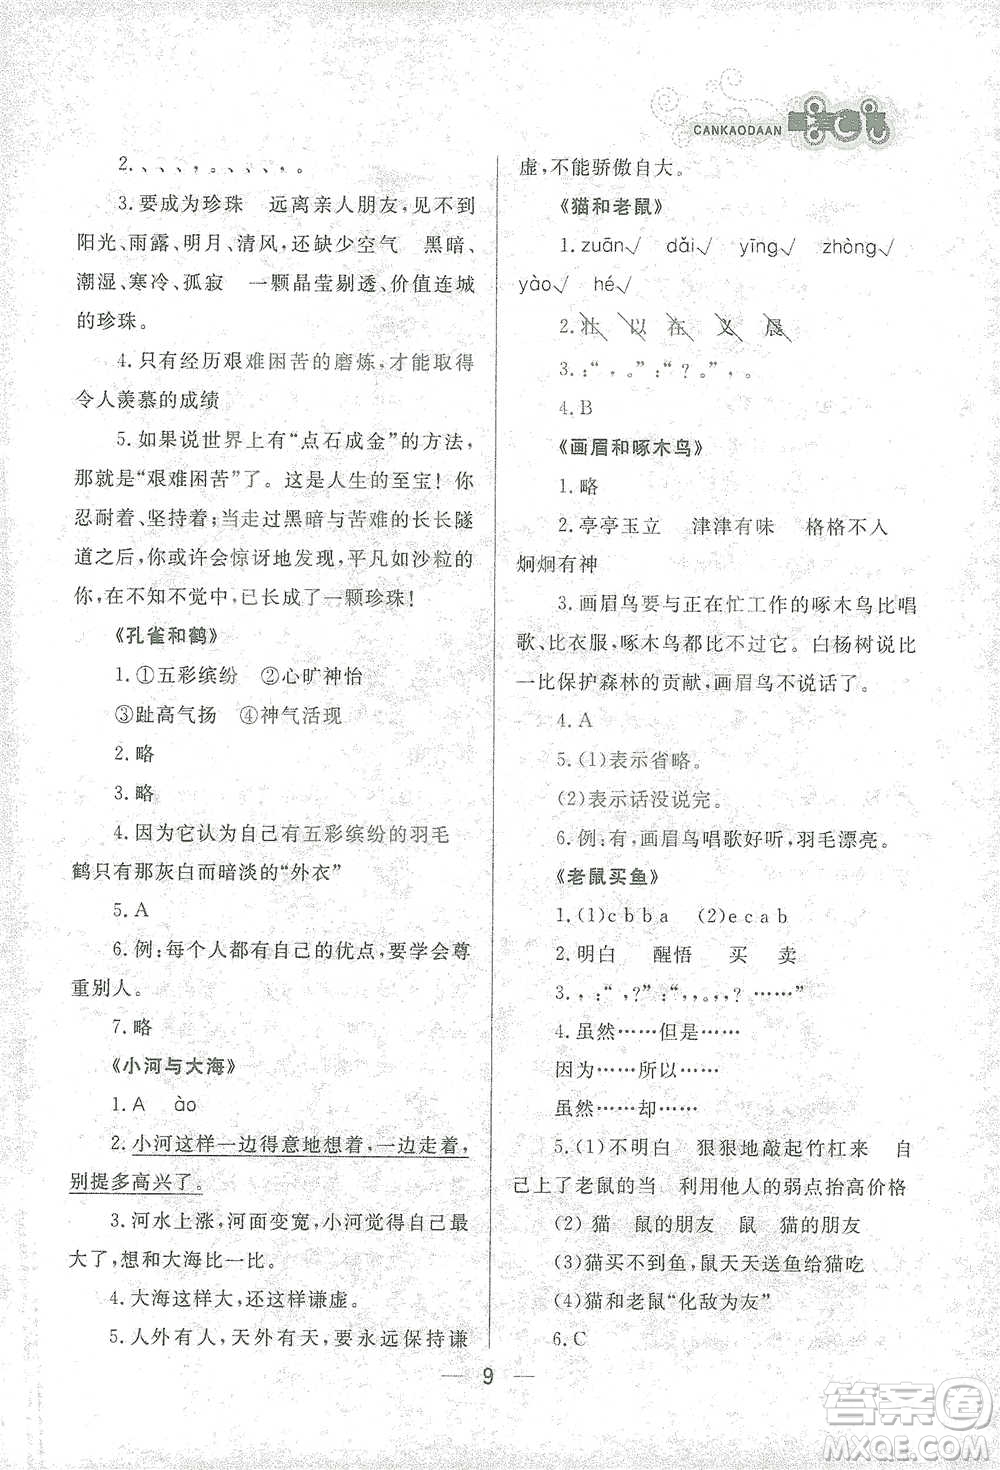 CANKAODAAN
2.、、、，、、、。
3.要成为珍珠 远离亲人朋友，见不到
阳光、雨露、明月、清风，还缺少空气 黑暗、
潮湿、寒冷、孤寂 一颗晶莹剔透、价值连城
的珍珠。
4.只有经历艰难困苦的磨炼，才能取得
令人羡慕的成绩
5.如果说世界上有“点石成金”的方法，
那就是“艰难困苦”了。这是人生的至宝！你
忍耐着、坚持着；当走过黑暗与苦难的长长隧
道之后，你或许会惊讶地发现，平凡如沙粒的
你，在不知不觉中，已长成了一颗珍珠！
《孔雀和鹤》
1.①五彩缤纷 ②心旷神怡
③趾高气扬 ④神气活现
2.略
3.略
4.因为它认为自己有五彩缤纷的羽毛
鹤只有那灰白而暗淡的“外衣”
5.A
6.例：每个人都有自己的优点，要学会尊
重别人。
7.略
《小河与大海》
1.A ào
2.小河这样一边得意地想着，一边走着，
别提多高兴了。
3.河水上涨，河面变宽，小河觉得自己最
大了，想和大海比一比。
4.大海这样大，还这样谦虚。
5.人外有人，天外有天，要永远保持谦
虚，不能骄傲自大。
《猫和老鼠》
1.zuān√ dǎi√ yīng√ zhòng√
yào√ hé√
2.壮 以 在 义 晨
3.：“，。”：“？。”，。
4.B
《画眉和啄木鸟》
1.略
2.亭亭玉立 津津有味 格格不入
炯炯有神
3.画眉鸟要与正在忙工作的啄木鸟比唱
歌、比衣服，啄木鸟都比不过它。白杨树说比
一比保护森林的贡献，画眉鸟不说话了。
4.A
5.(1)表示省略。
(2)表示话没说完。
6.例：有，画眉鸟唱歌好听，羽毛漂亮。
《老鼠买鱼》
1.(1)c b b a (2)e c a b
2.明白 醒悟 买 卖
3.，：“，？”：“，，。，？……”
4.虽然……但是……
因为……所以……
虽然……却……
5.(1)不明白 狠狠地敲起竹杠来 自
己上了老鼠的当 利用他人的弱点抬高价格
(2)猫 鼠的朋友 鼠 猫的朋友
(3)猫买不到鱼，鼠天天送鱼给猫吃
(4)猫和老鼠“化敌为友”
6.C
9
答案圈
MXQE.COM